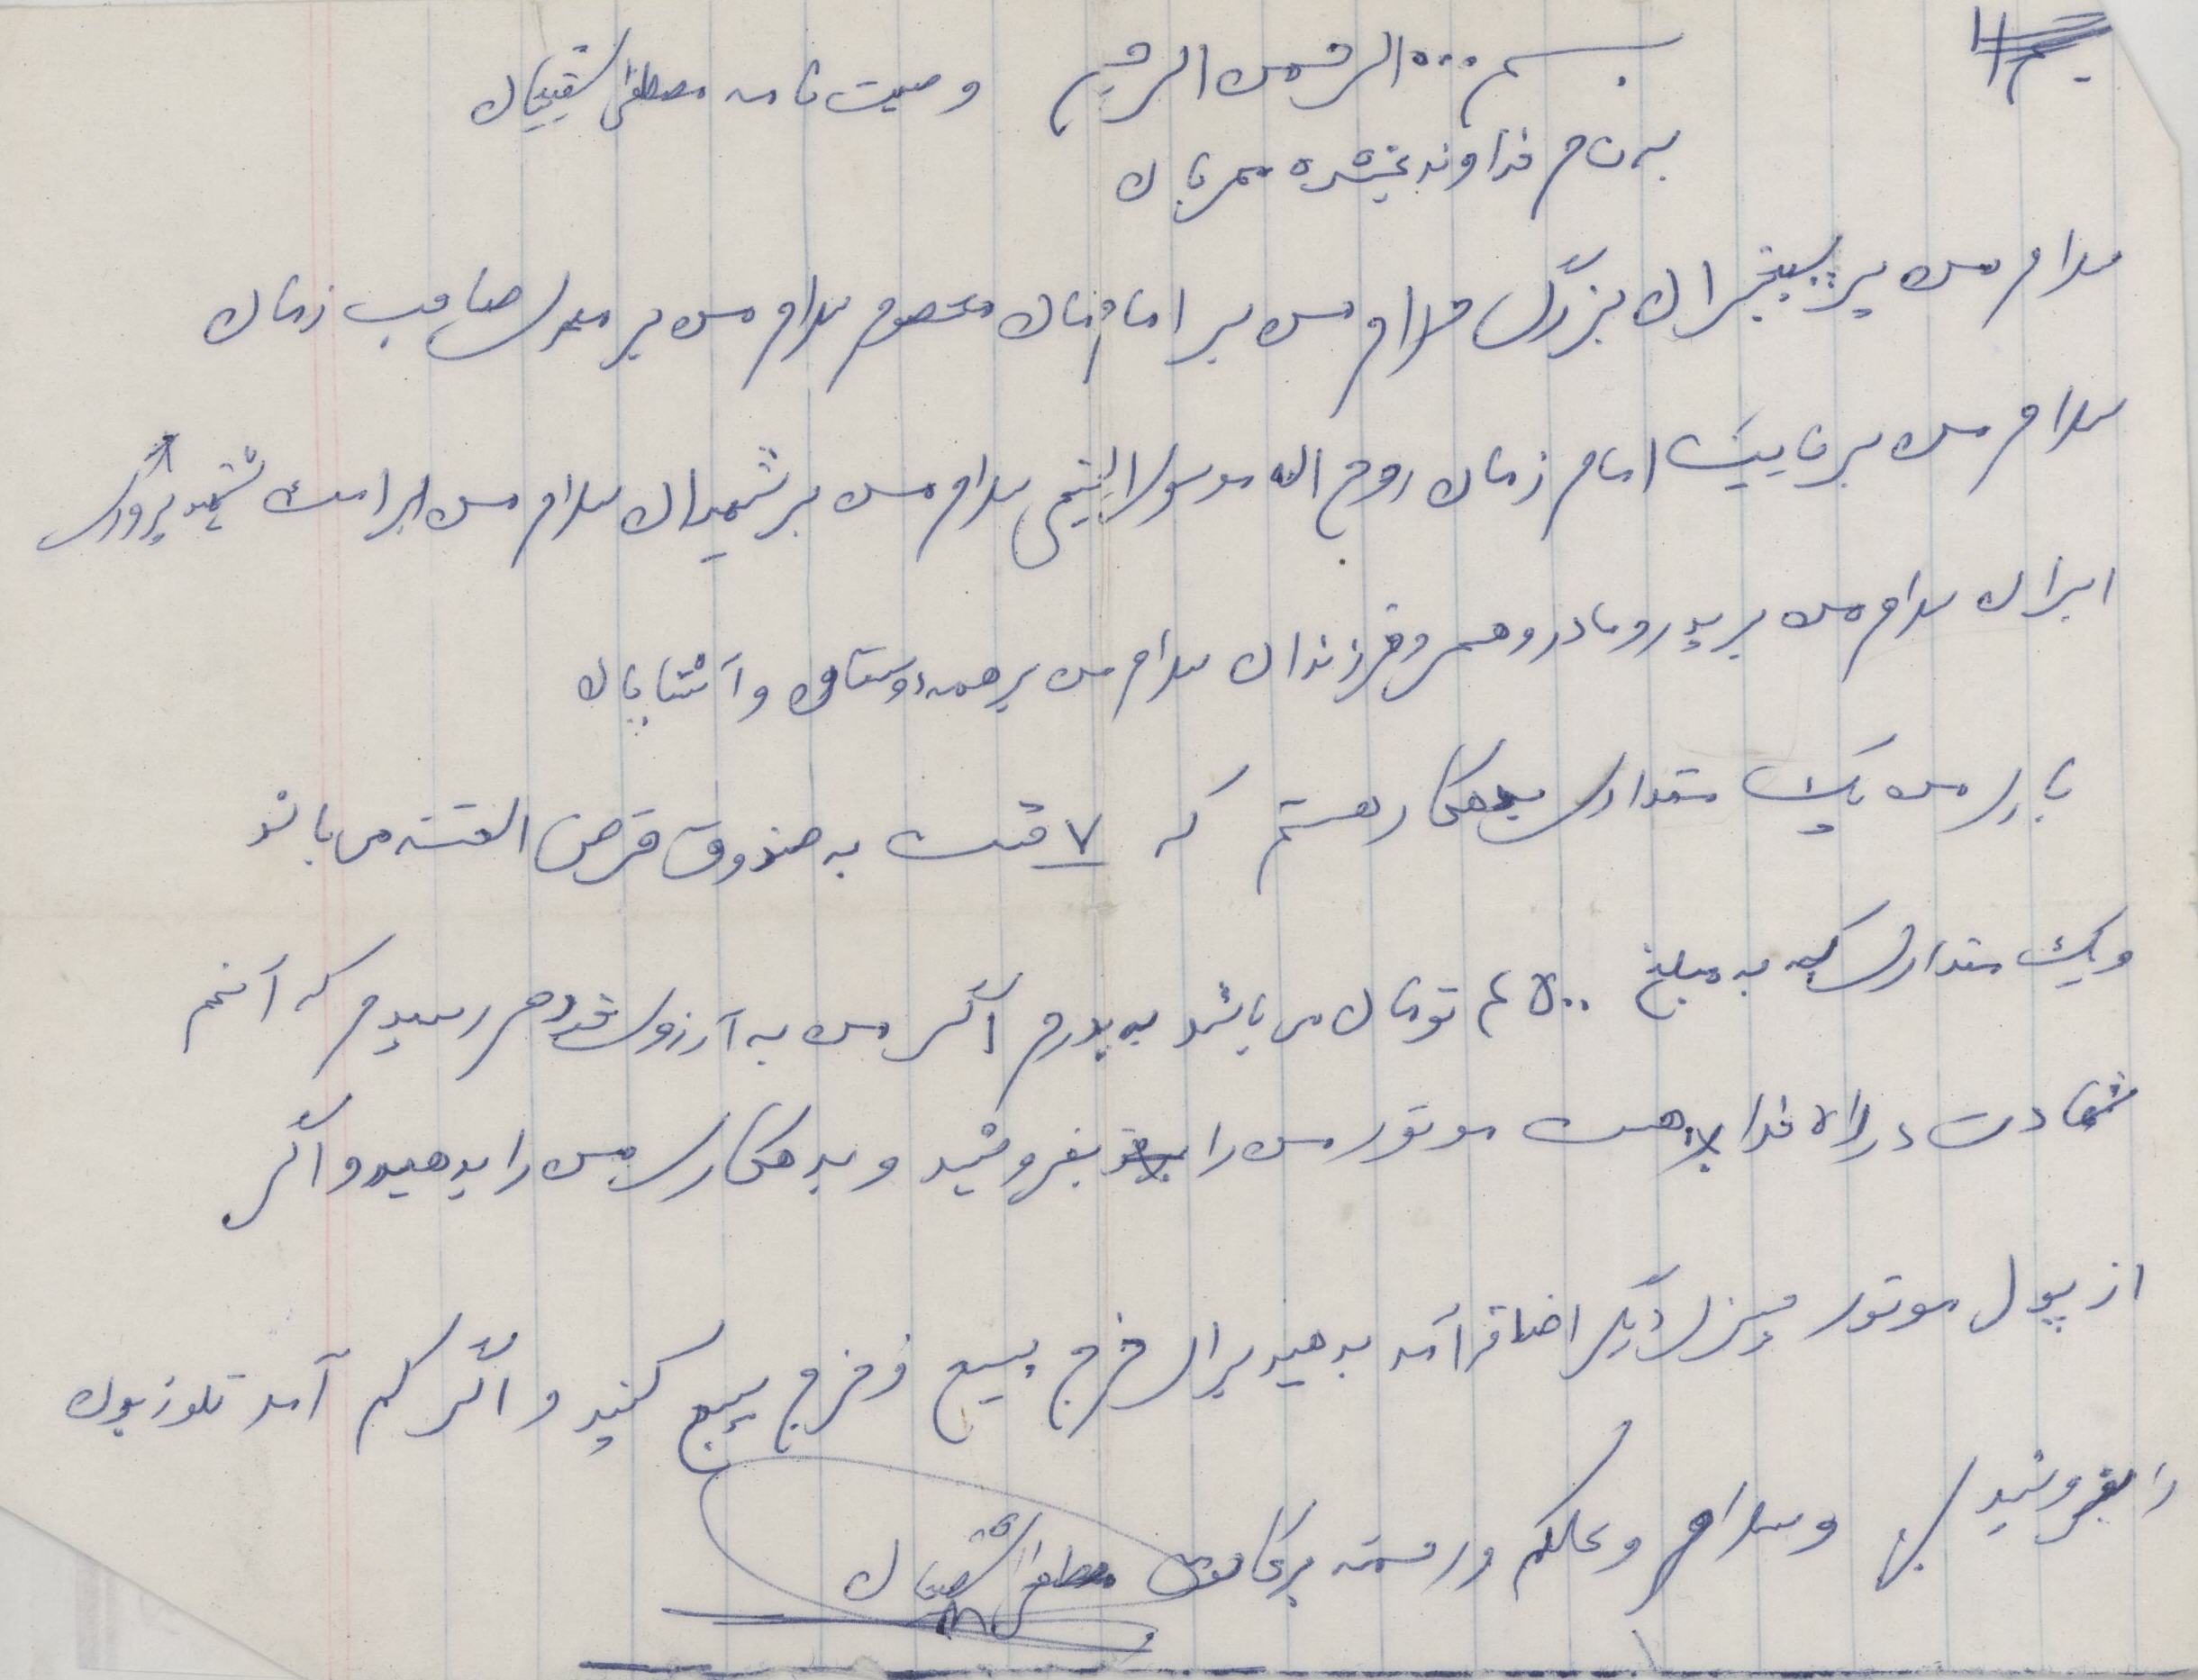 بسم ... الرحمن الرحیم وصیت نامه مصطفی
به نام خداوند بخشنده مهربان
سلام من بر پیغمبران بزرگ سلام من بر امامان معصوم سلام من بر مهدی صاحب زمان
سلام من بر نایب امام زمان روح اله موسوی الخمینی سلام من بر شهیدان سلام من بر امت شهید پرور
ایران سلام من بر پدر و مادر و همسر و فرزندان سلام من بر همه دوستان و آشنایان
باری من یک مقداری بدهکار هستم که ۷ قست به صندوق قرض الحسنه می باشد
و یک مقداری که به مبلغ ۴۵۰۰ تومان می باشد به پدرم اگر من به آرزوی خودم رسیدم که آنهم
شهادت در راه خدا هست موتور من را بفروشید و بدهکاری من را بدهید و اگر
از پول موتور چیزی دیگر اضافه آمد بدهید برای خرج بسیج و خرج بسیج کنید و اگر کم آمد تلوزیون
را بفروشید وسلام وعلکم ورحمته برکاته مصطفی